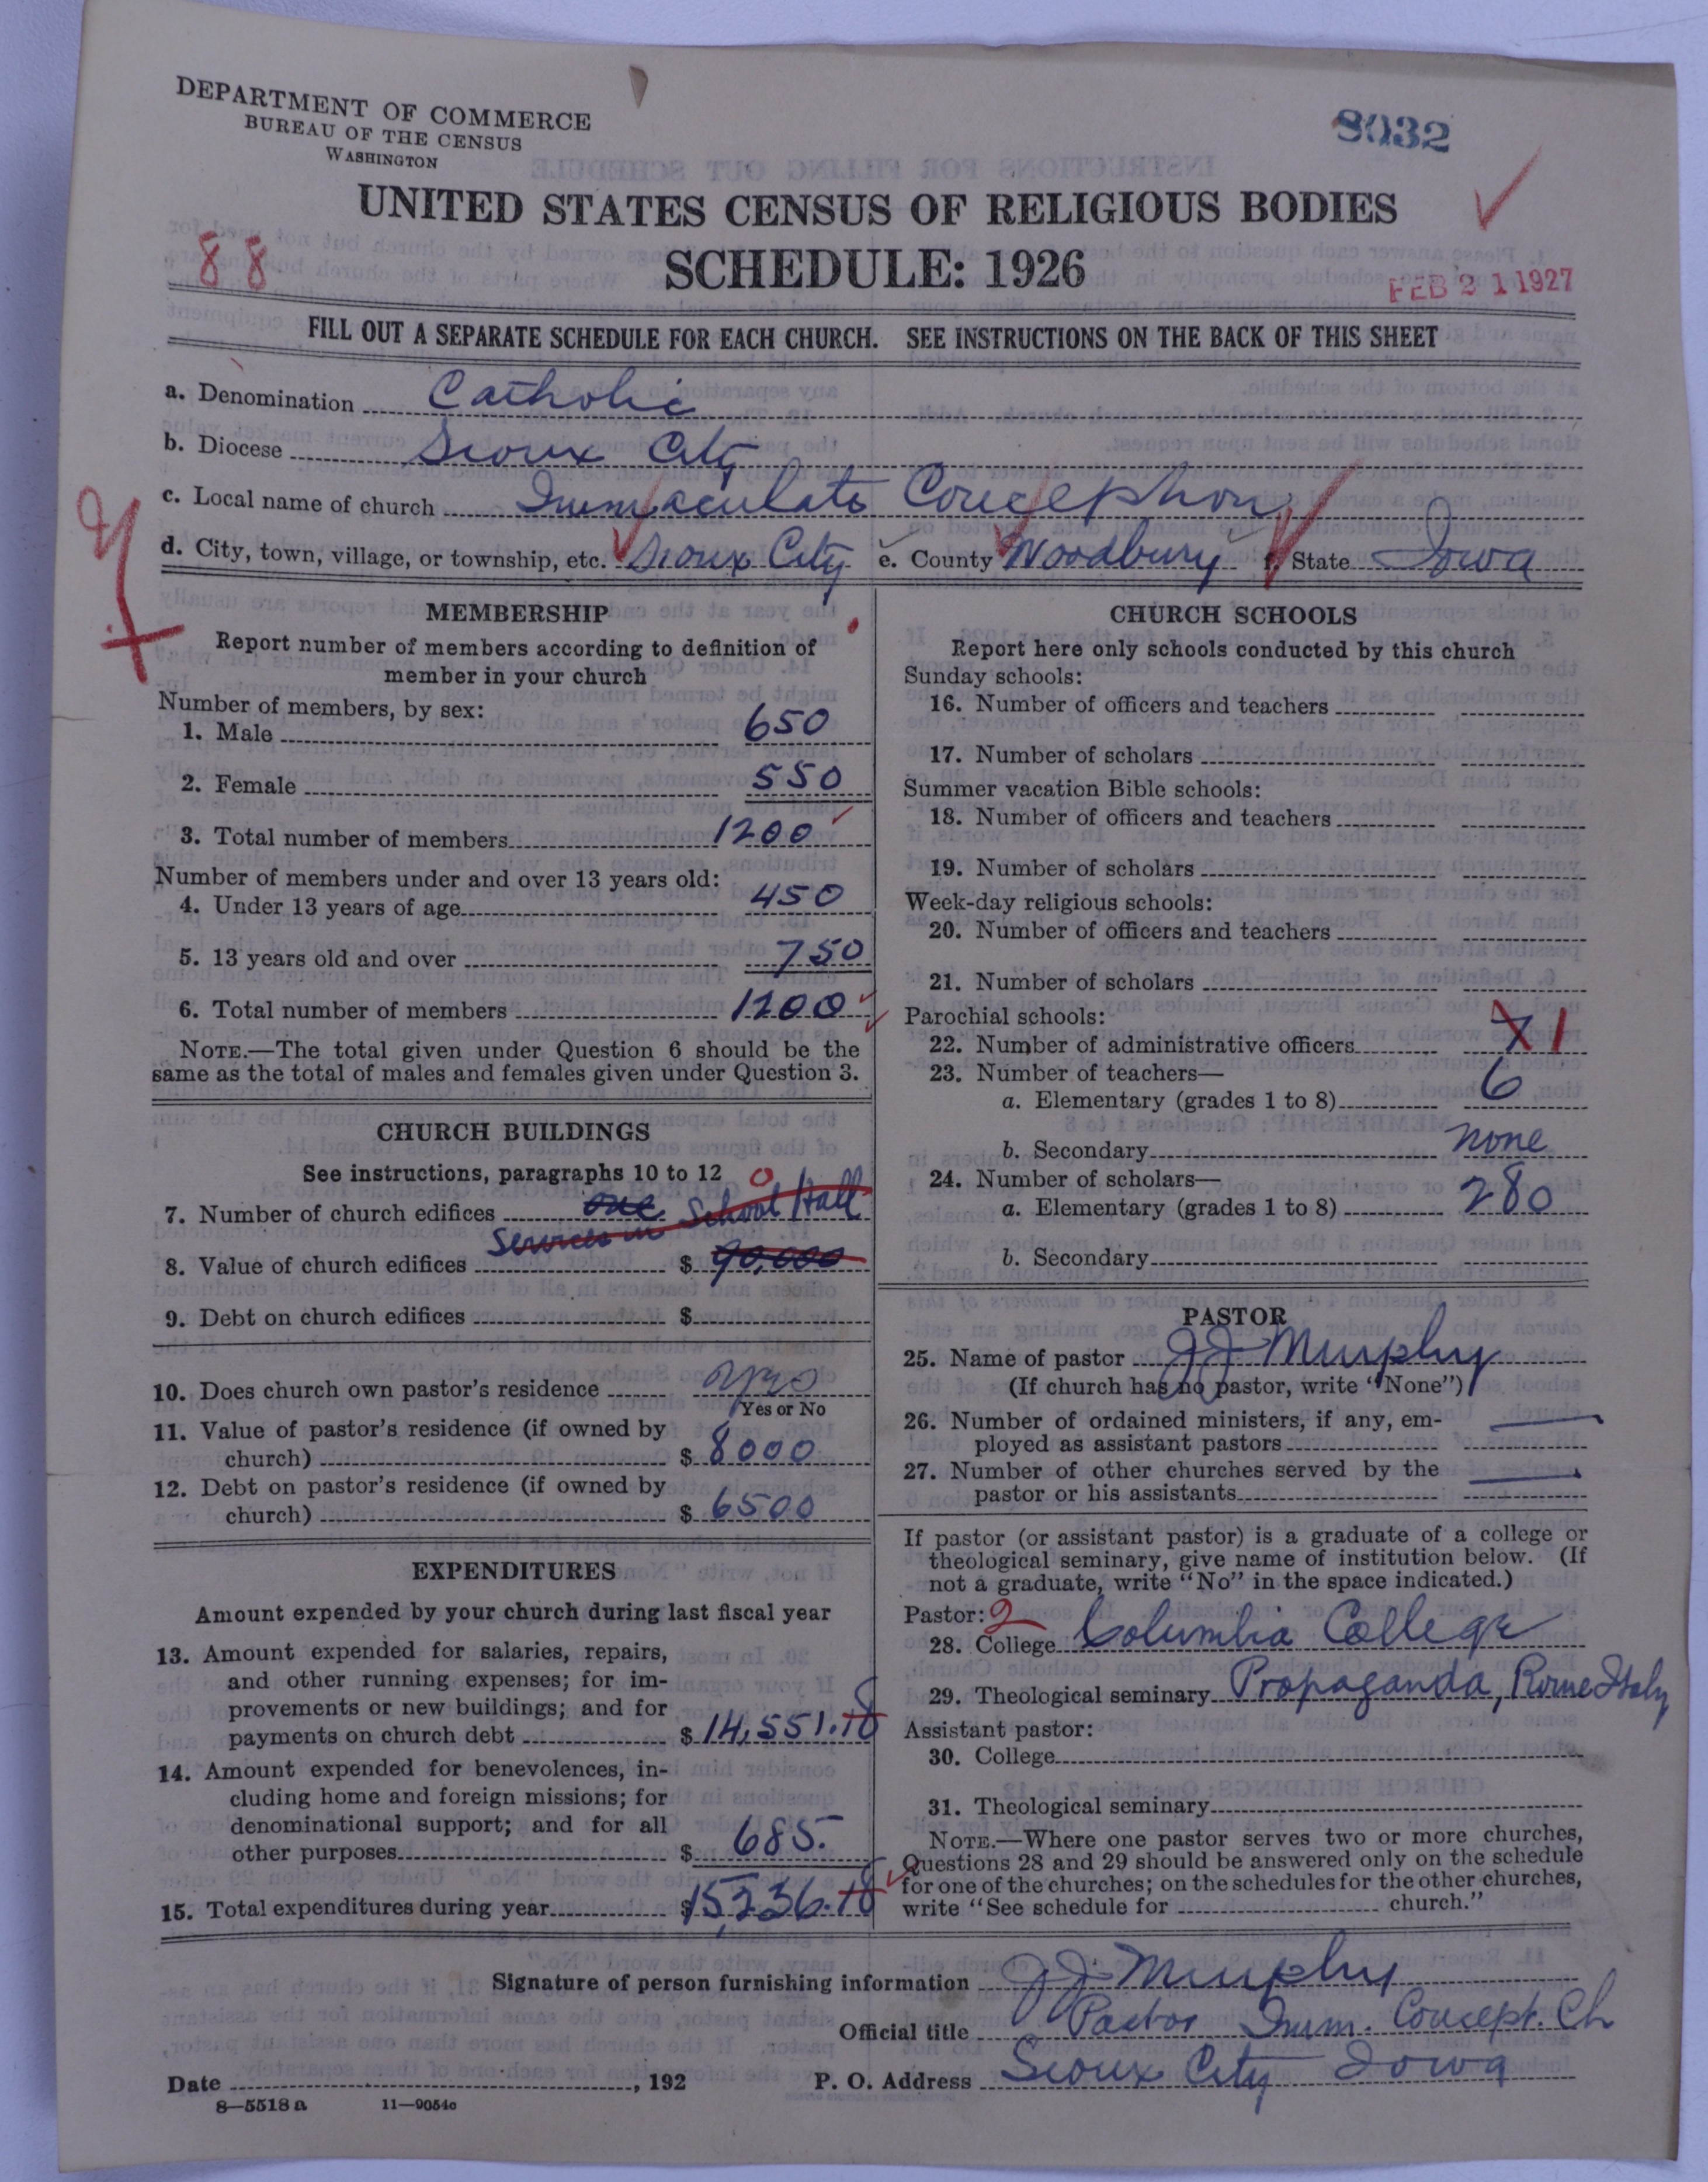 DEPARTMENT OF COMMERCE
BUREAU OF THE CENSUS
WASHINGTON
8032
UNITED STATES CENSUS OF RELIGIOUS BODIES
SCHEDULE: 1926
88
FEB 21 1927
FILL OUT A SEPARATE SCHEDULE FOR EACH CHURCH. SEE INSTRUCTIONS ON THE BACK OF THIS SHEET
a. Denomination Catholic
b. Diocese Sioux City
c. Local name of church Immaculate Conception
d. City, town, village, or township, etc. Sioux City e. County Woodbury f. State Iowa
MEMBERSHIP
Report number of members according to definition of
member in your church
Number of members, by sex:
1. Male 650
2. Female 550
3. Total number of members 1200
Number of members under and over 13 years old:
4. Under 13 years of age 450
5. 13 years old and over 750
6. Total number of members 1200
NOTE.—The total given under Question 6 should be the
same as the total of males and females given under Question 3.
CHURCH BUILDINGS
See instructions, paragraphs 10 to 12
0
7. Number of church edifices one School Hall
Services in
8. Value of church edifices $ 90,000
9. Debt on church edifices $
10. Does church own pastor's residence yes
Yes or No
11. Value of pastor's residence (if owned by
church) $ 8000
12. Debt on pastor's residence (if owned by
church) $ 6500
EXPENDITURES
Amount expended by your church during last fiscal year
13. Amount expended for salaries, repairs,
and other running expenses; for im-
provements or new buildings; and for
payments on church debt $ 14,551.18
14. Amount expended for benevolences, in-
cluding home and foreign missions; for
denominational support; and for all
other purposes $ 685.
15. Total expenditures during year $ 15,236.18
CHURCH SCHOOLS
Report here only schools conducted by this church
Sunday schools:
16. Number of officers and teachers
17. Number of scholars
Summer vacation Bible schools:
18. Number of officers and teachers
19. Number of scholars
Week-day religious schools:
20. Number of officers and teachers
21. Number of scholars
Parochial schools:
22. Number of administrative officers 7 1
23. Number of teachers—
a. Elementary (grades 1 to 8) 6
b. Secondary none
24. Number of scholars—
a. Elementary (grades 1 to 8) 280
b. Secondary
PASTOR
25. Name of pastor JJ Murphy
(If church has no pastor, write "None")
26. Number of ordained ministers, if any, em-
ployed as assistant pastors
27. Number of other churches served by the
pastor or his assistants
If pastor (or assistant pastor) is a graduate of a college or
theological seminary, give name of institution below. (If
not a graduate, write "No" in the space indicated.)
Pastor: 2
28. College Columbia College
29. Theological seminary Propaganda, Rome Italy
Assistant pastor:
30. College
31. Theological seminary
NOTE.—Where one pastor serves two or more churches,
Questions 28 and 29 should be answered only on the schedule
for one of the churches; on the schedules for the other churches,
write "See schedule for church."
Signature of person furnishing information JJ Murphy
Official title Pastor Imm. Concept. Ch
Date , 192 P. O. Address Sioux City Iowa
8—5518 a 11—9054c